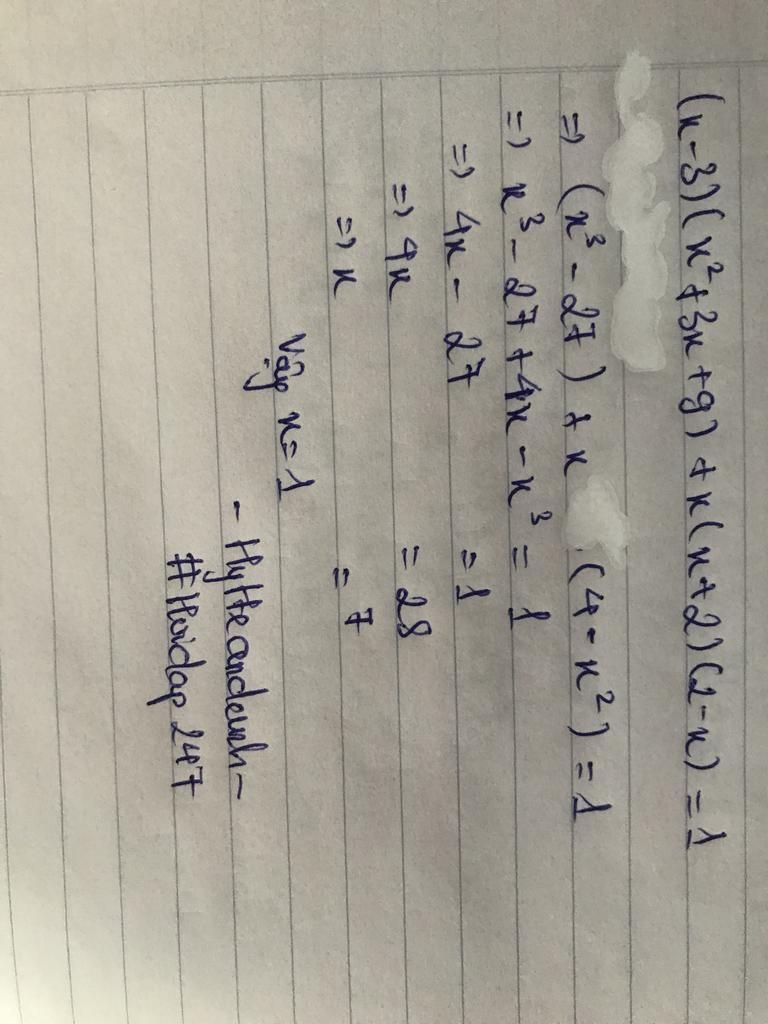 (x-3)(x²+3x+9)+x(x+2)(2-x)=1
=> (x³-27)+x.(4-x²)=1
=> x³-27+4x-x³=1
=> 4x-27 =1
=> 4x =28
=> x =7
Vậy x=1
#Hoidap247